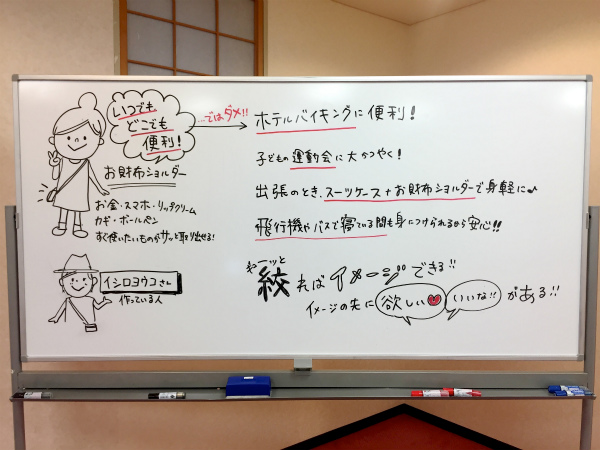 いつでも
どこでも
便利!
お財布ショルダー
お金・スマホ・リップクリーム
カギ・ボールペン
すぐ使いたいものがサッと取り出せる!
イシロヨウコさん
作っている人
…ではダメ!!
ホテルバイキングに便利!
子どもの運動会に大かつやく!
出張のとき、スーツケース+お財布ショルダーで身軽に♪
飛行機やバスで寝ている間も身につけられるから安心!!
ぎゅーッと
絞ればイメージできる!!
イメージの先に 欲しい♥ いいな!! がある!!